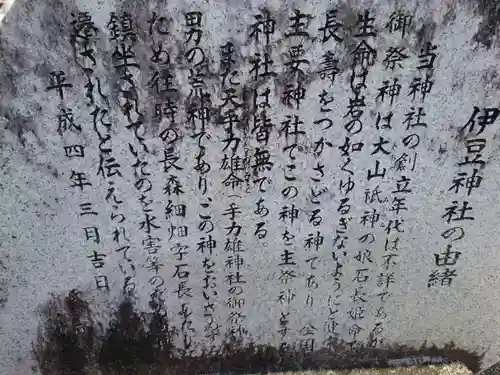 伊豆神社の由緒
当神社の創立年代は不詳であるが
御祭神は大山祇神の娘石長姫命で
生命は岩の如くゆるぎないようにと健康
長壽をつかさどる神であり、全国
主要神社でこの神を主祭神とする
神社は皆無である。
また天手力雄命(手力雄神社の御祭神
男の荒神であり、この神をおいさめする
ため往時の長森細畑字石長あたりに
鎮坐されていたのを水害等のため
遷されたと伝えられている
平成四年三月吉日